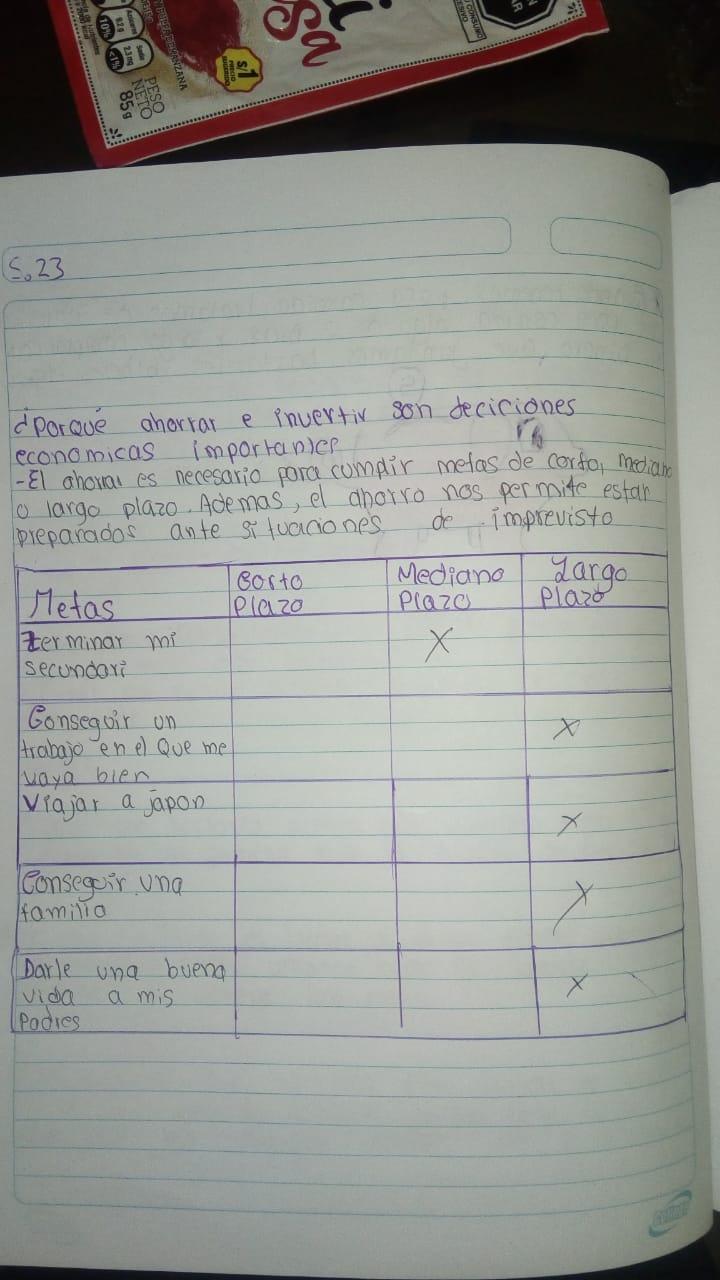 i
sa
S/1
PRECIO SUGERIDO
PESO
NETO
85g
10%
<1%
S.23
¿Porqué ahorrar e invertir son deciciones
economicas importantes
-El ahorrar es necesario para cumplir metas de corto, mediano
o largo plazo. Ademas, el ahorro nos permite estar
preparados ante situaciones de imprevisto
Metas
Corto
Plazo
Mediano
Plazo
Largo
Plazo
terminar mi
secundari
X
Conseguir un
trabajo en el que me
vaya bien
X
Viajar a japon
X
Conseguir una
familia
X
Darle una buena
vida a mis
Padres
X